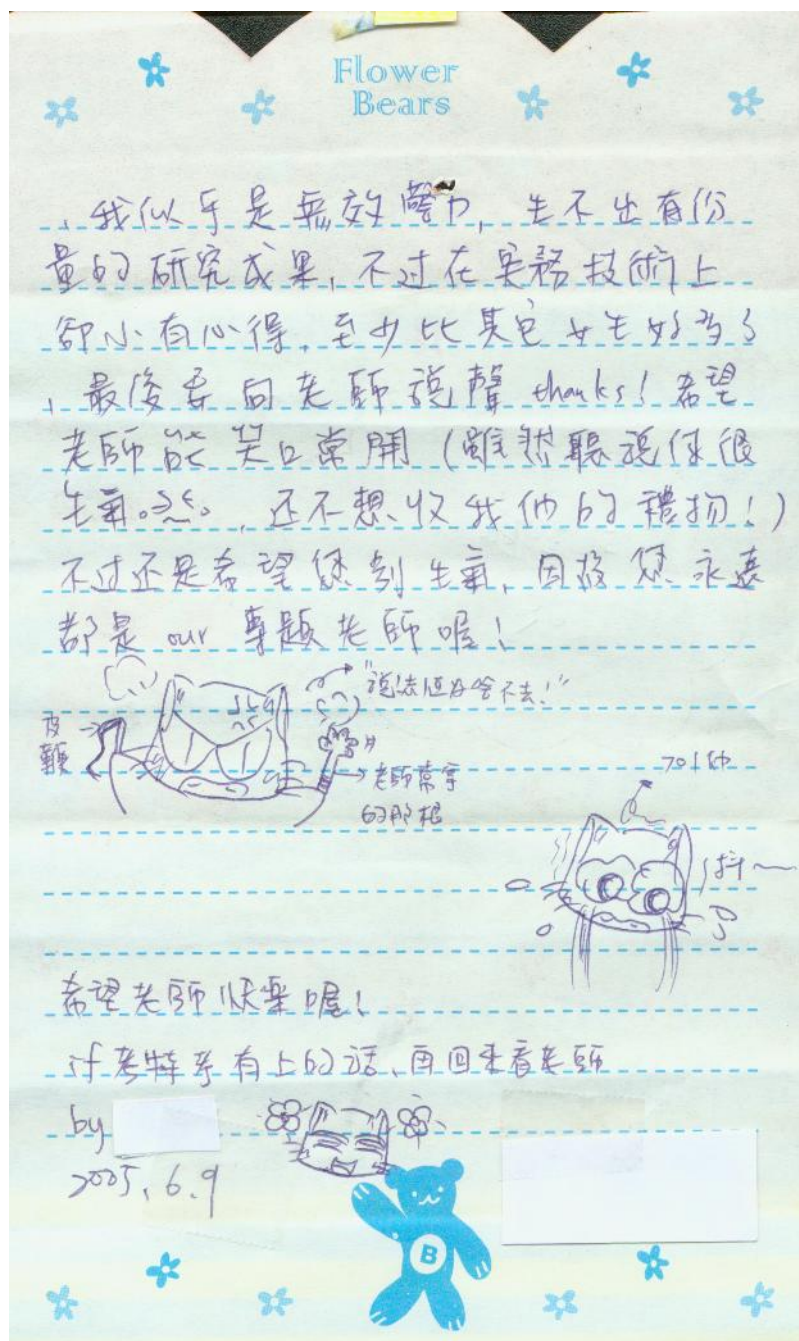 Flower
Bears
、我似乎是無效努力, 生不出有份
量的研究成果, 不过在実務技術上
卻小有心得, 至少比其它女生好多了
, 最後要向老師說聲 thanks! 希望
老師能笑口常開 (雖然聽說你很
生氣。, 还不想收我们的禮物!)
不过还是希望您別生氣, 因為您永遠
都是 our 專題老師喔!
"說誌但好唸不去!"
皮鞭
老師常拿
的那根
701
抖~
希望老師快樂喔!
if 考特考有上的話、再回來看老師
by
2005. 6. 9
B